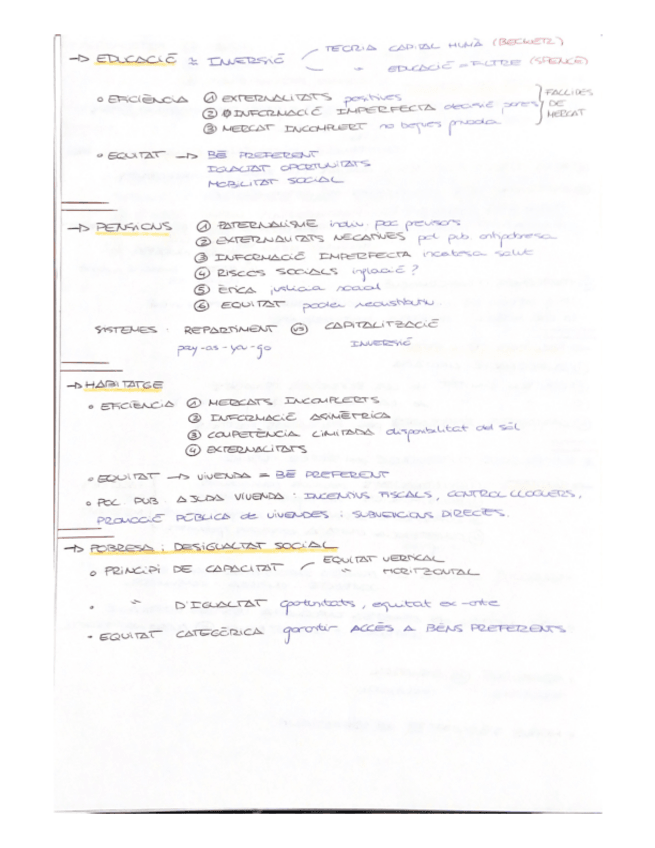 → EDUCACIÓ = INVERSIÓ
TEORIA CAPITAL HUMÀ (BECKER)
" EDUCACIÓ = FILTRE (SPENCE)
∘ EFICIÈNCIA ① EXTERNALITATS positives
② INFORMACIÓ IMPERFECTA decisió pares
③ MERCAT INCOMPLERT no beques privada
FALLIDES DE MERCAT
∘ EQUITAT → BÉ PREFERENT
IGUALTAT OPORTUNITATS
MOBILITAT SOCIAL
→ PENSIONS ① PATERNALISME indiv. poc previsors
② EXTERNALITATS NEGATIVES pol pub antipobresa
③ INFORMACIÓ IMPERFECTA incertesa salut
④ RISCOS SOCIALS inflació?
⑤ ÈTICA justícia social
⑥ EQUITAT poder redistributiu
SISTEMES: REPARTIMENT VS CAPITALITZACIÓ
pay-as-you-go INVERSIÓ
→ HABITATGE
∘ EFICIÈNCIA ① MERCATS INCOMPLERTS
② INFORMACIÓ ASIMÈTRICA
③ COMPETÈNCIA LIMITADA disponibilitat del sòl
④ EXTERNALITATS
∘ EQUITAT → VIVENDA = BÉ PREFERENT
∘ POL. PUB. AJUDA VIVENDA: INCENTIUS FISCALS, CONTROL LLOGUERS,
PROMOCIÓ PÚBLICA de VIVENDES i SUBVENCIONS DIRECTES.
→ POBRESA i DESIGUALTAT SOCIAL
∘ PRINCIPI DE CAPACITAT EQUITAT VERTICAL
" HORITZONTAL
∘ " D'IGUALTAT oportunitats, equitat ex-ante
∘ EQUITAT CATEGÒRICA garantir ACCÉS A BÉNS PREFERENTS